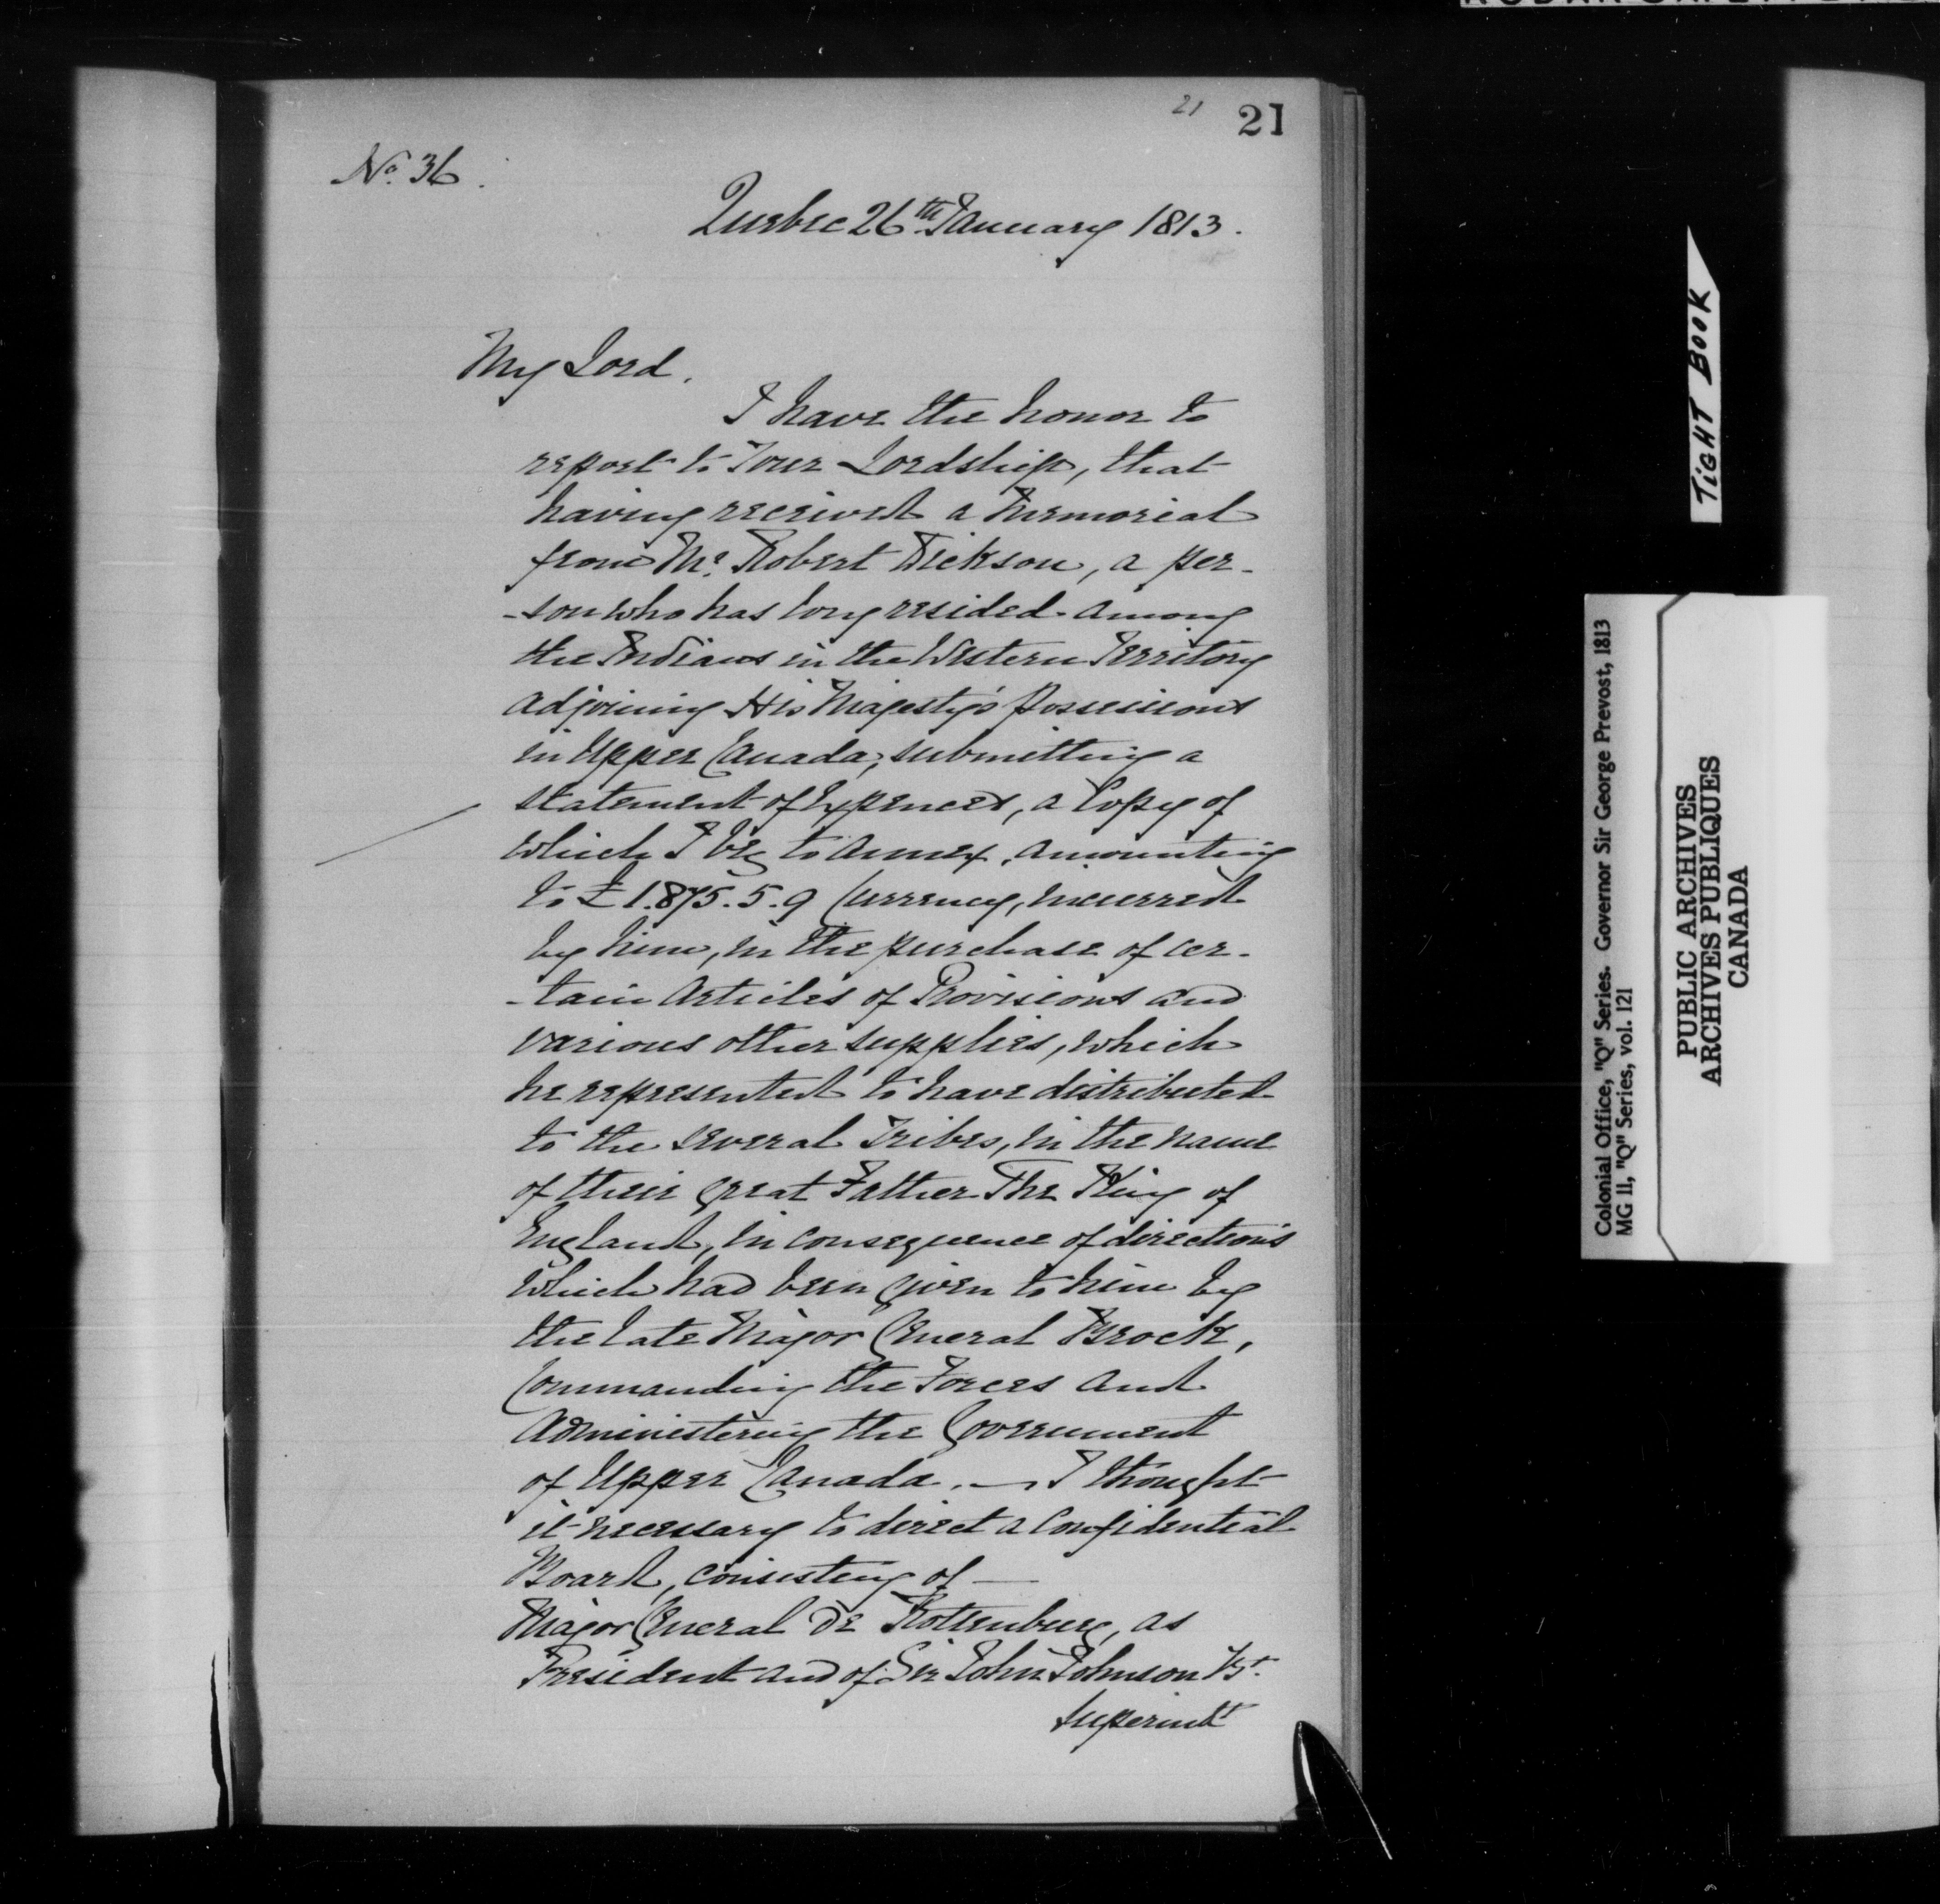 21 21
No. 36.
Quebec 26th January 1813.
My Lord.
I have the honor to
report to Your Lordship, that
having received a Memorial
from Mr. Robert Dickson, a per-
-son who has long resided among
the Indians in the Western Territory
adjoining His Majesty's Possessions
in Upper Canada, submitting a
statement of Expences, a Copy of
which I beg to annex, amounting
to £1.875.5.9 Currency, incurred
by him, in the purchase of cer-
-tain Articles of Provisions and
various other supplies, which
he represented to have distributed
to the several Tribes, in the name
of their Great Father The King of
England, in consequence of directions
which had been given to him by
the late Major General Brock,
Commanding the Forces and
Administering the Government
of Upper Canada. — I thought
it necessary to direct a Confidential
Board, consisting of —
Major General De Rottenburg, as
President and of Sir John Johnson Bt.
Superindt
TIGHT BOOK
Colonial Office, "Q" Series. Governor Sir George Prevost, 1813
MG 11, "Q" Series, vol. 121
PUBLIC ARCHIVES
ARCHIVES PUBLIQUES
CANADA